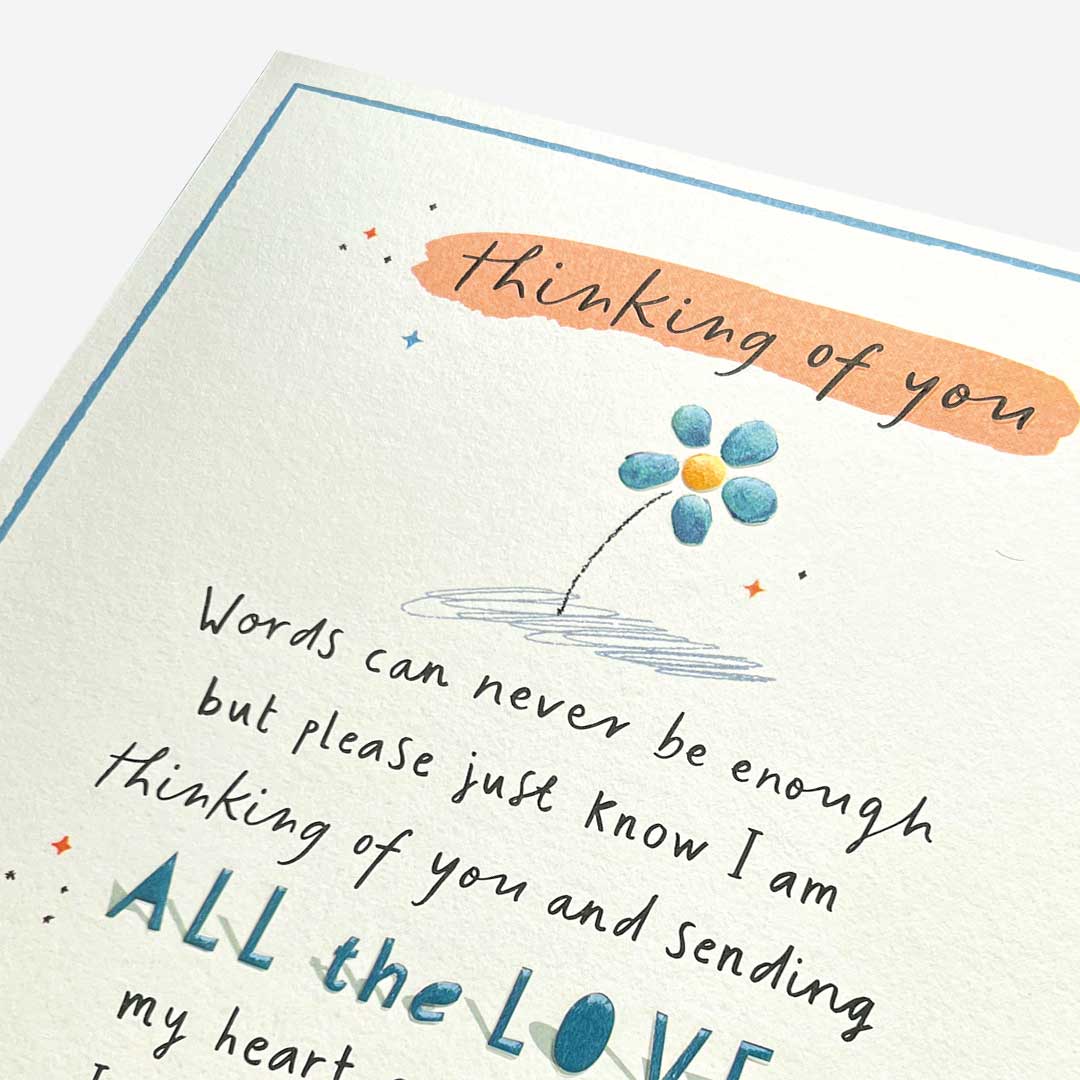 thinking of you
Words can never be enough
but please just know I am
thinking of you and sending
ALL the LOVE
my heart
I